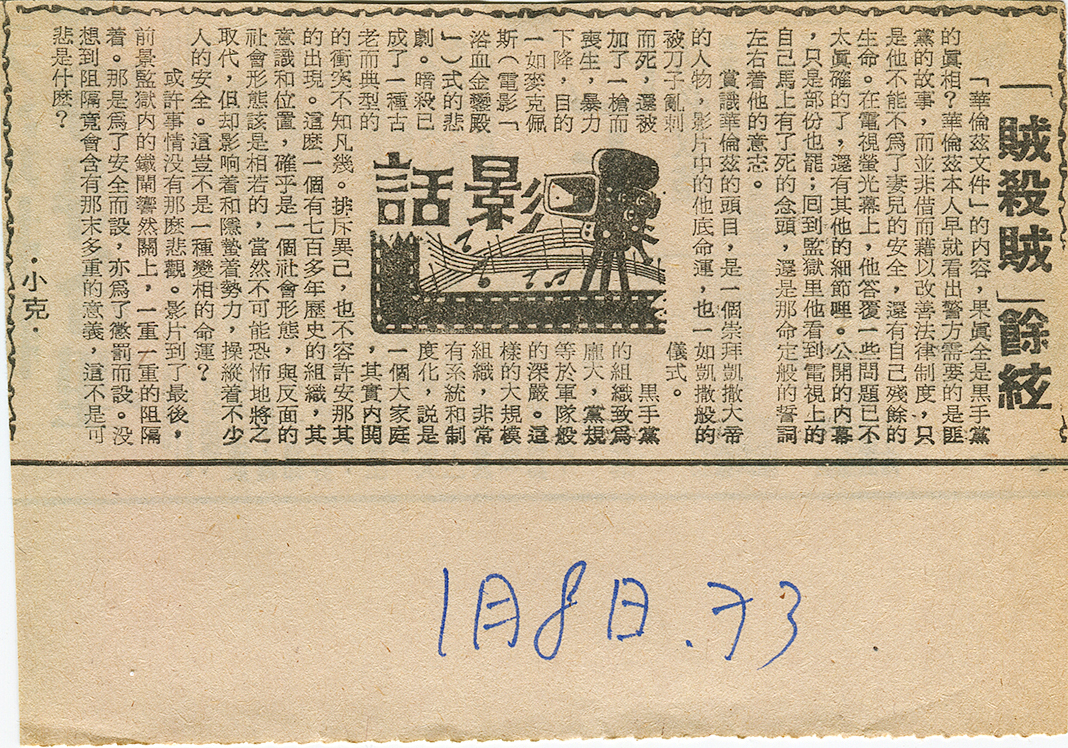 「賊殺賊」餘絃
「華倫茲文件」的內容,果眞全是黑手黨
的眞相?華倫茲本人早就看出警方需要的是匪
黨的故事,而並非借而藉以改善法律制度,只
是他不能不爲了妻兒的安全,還有自己殘餘的
生命。在電視螢光幕上,他答覆一些問題已不
太眞確的了,還有其他的細節哩。公開的內幕
,只是部份也罷;回到監獄里他看到電視上的
自己馬上有了死的念頭,還是那命定般的誓詞
左右着他的意志。
賞識華倫茲的頭目,是一個崇拜凱撒大帝
的人物,影片中的他底命運,也一如凱撒般的
被刀子亂刺
而死,還被
加了一槍而
喪生,暴力
下降,目的
一如麥克佩
斯(電影「
浴血金鑾殿
」)式的悲
劇。暗殺已
成了一種古
老而典型的
影話
儀式。
黑手黨
的組織致爲
龐大,黨規
等於軍隊般
的深嚴。這
樣的大規模
組織,非常
有系統和制
度化,説是
一個大家庭
,其實內閧
的衝突不知凡幾。排斥異己,也不容許安那其
的出現。這麽一個有七百多年歷史的組織,其
意識和位置,確乎是一個社會形態,與反面的
社會形態該是相若的,當然不可能恐怖地將之
取代,但却影响着和隱蟄着勢力,操縱着不少
人的安全。這豈不是一種變相的命運?
或許事情没有那麽悲觀。影片到了最後,
前景監獄內的鐵閘響然關上,一重一重的阻隔
着。那是爲了安全而設,亦爲了懲罰而設。没
想到阻隔竟會含有那末多重的意義,這不是可
悲是什麽?
·小克·
1月8日.73